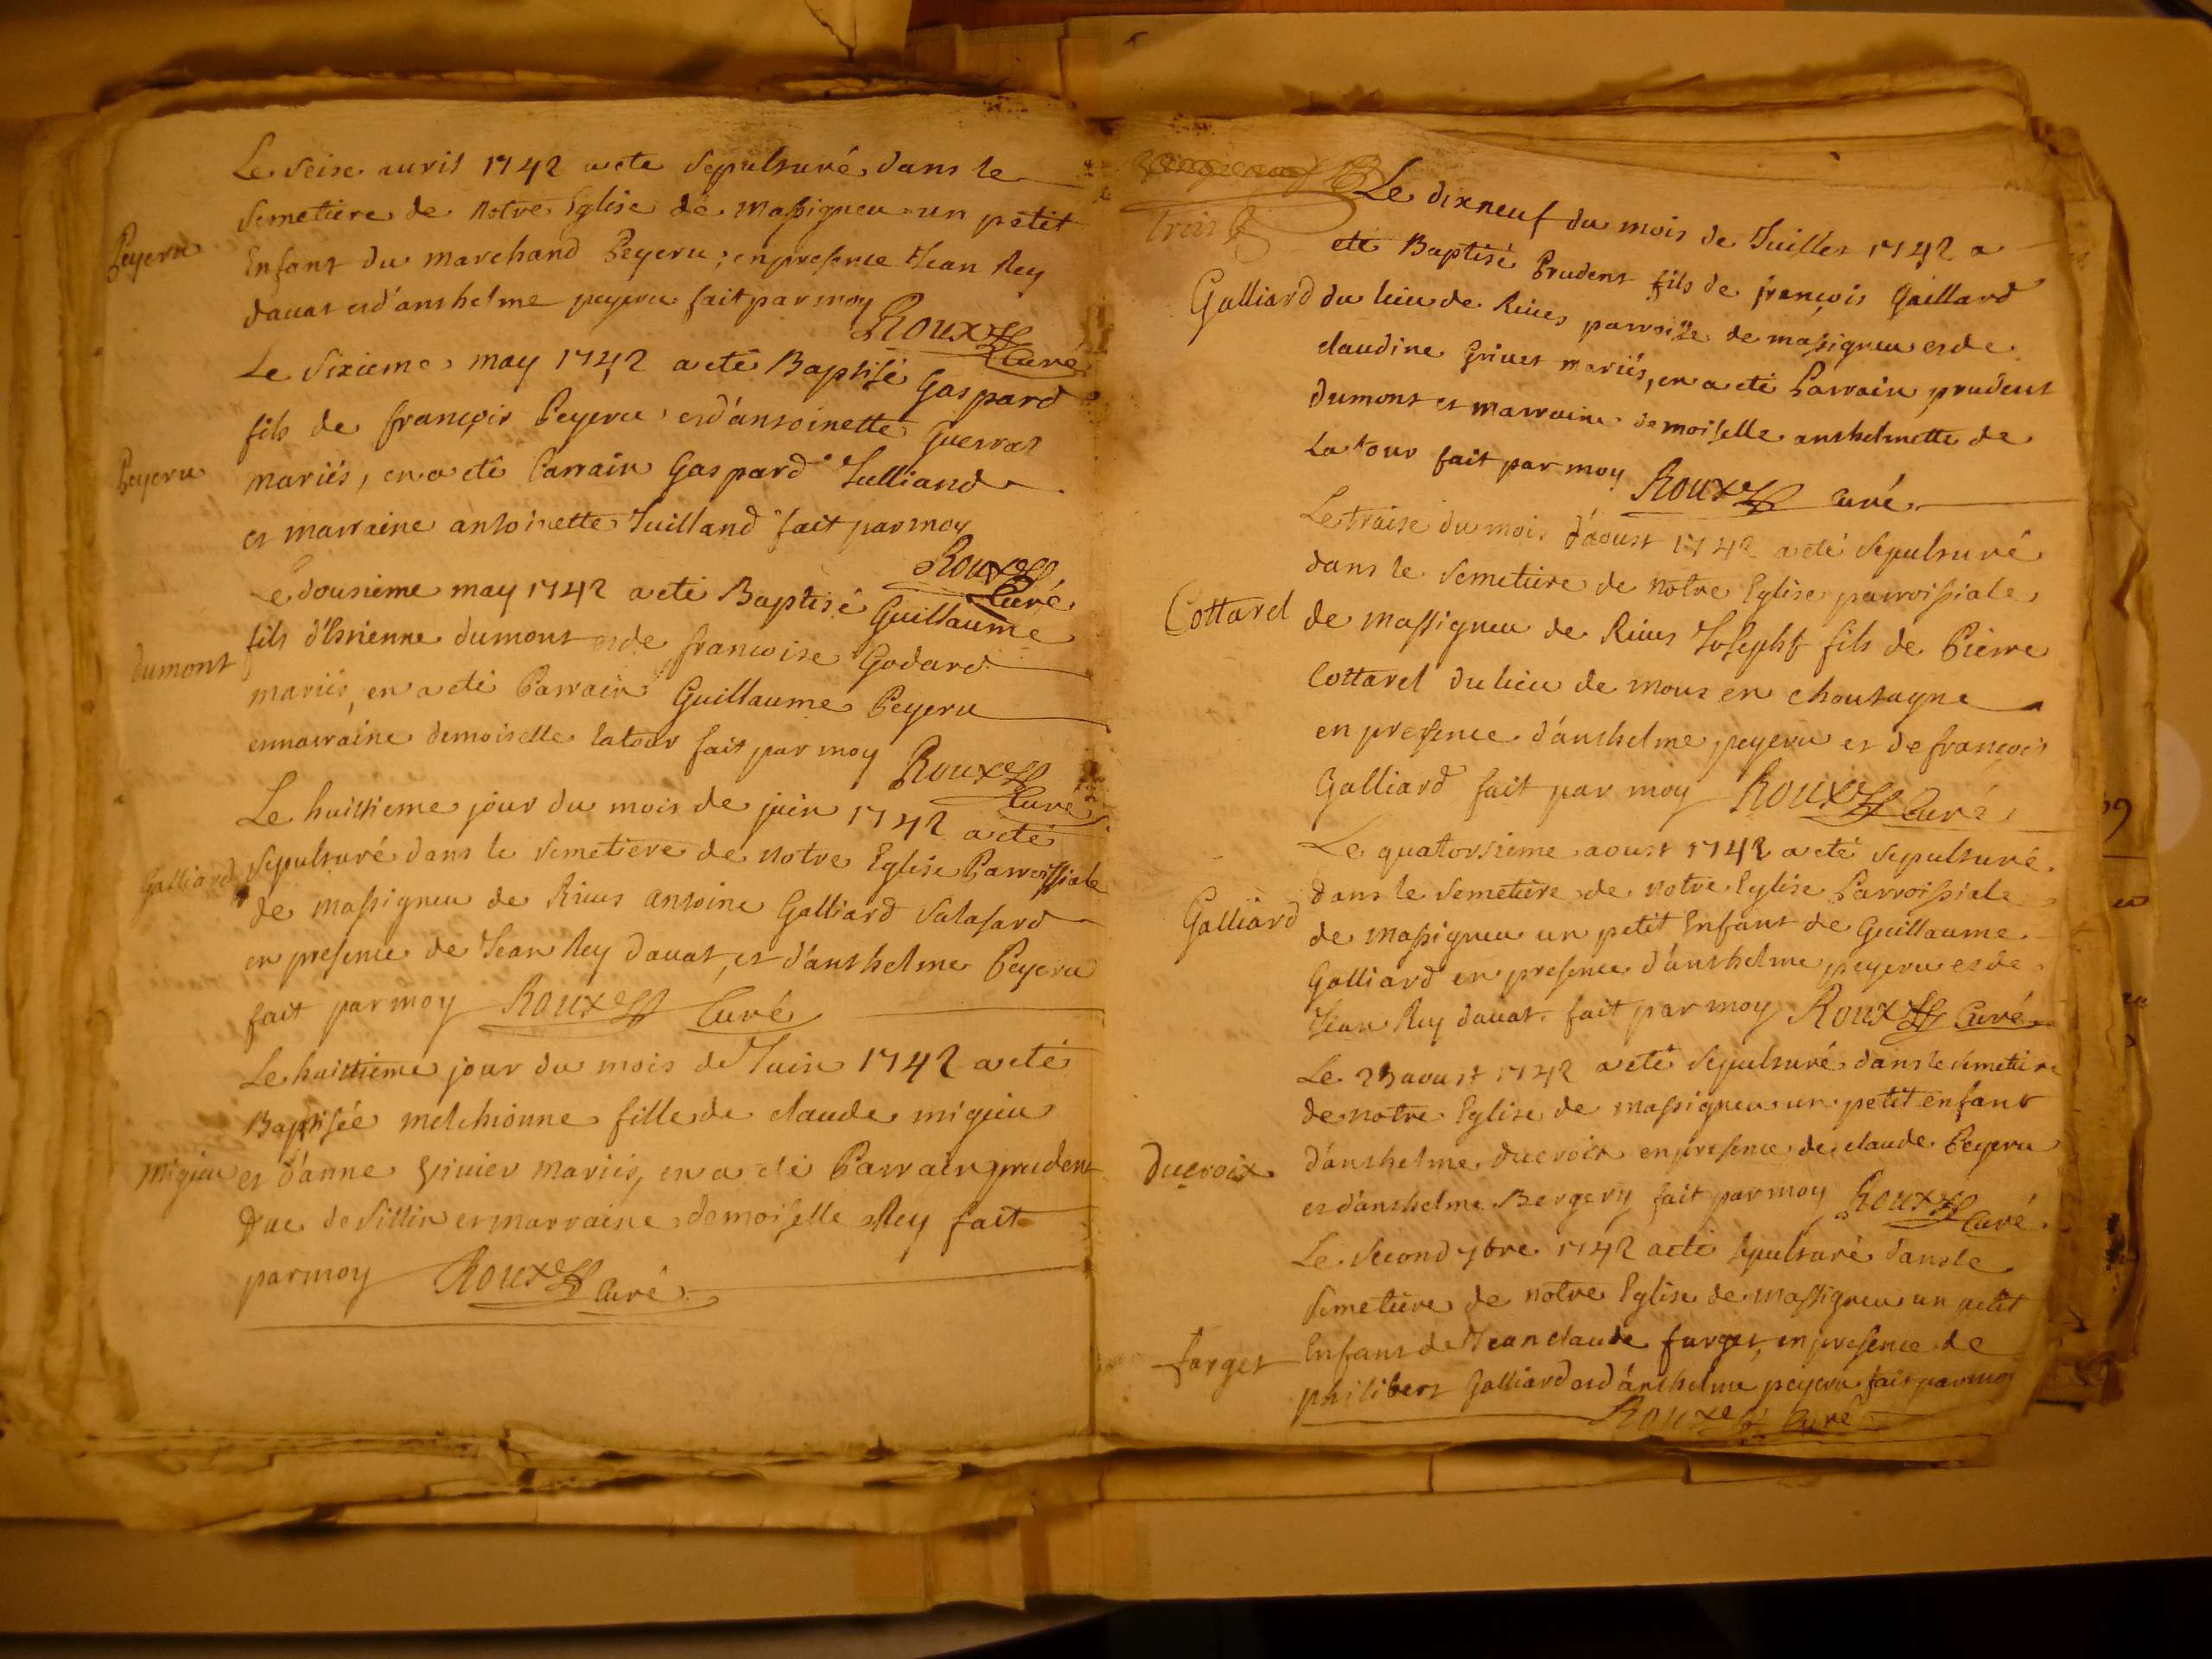 Le seise avril 1742 a ete sepulturé dans le
semetiere de notre Eglise de massigneu un petit
Peyeru
Enfant du marchand Peyeru, en presence Jean Rey
davat et d'anthelme peyeru fait par moy
Roux Curé
Le sixieme may 1742 a eté Baptisé Gaspard
fils de françois Peyeru et d'antoinette Guerraz
Peyeru
mariés, en a eté Parrain Gaspard Julliand
et marraine antoinette Juilland fait par moy
Roux Curé
Le dousieme may 1742 a eté Baptisé Guillaume
fils d'Estienne dumont et de francoise Godard
dumont
mariés, en a eté Parrain Guillaume Peyeru
et marraine demoiselle latour fait par moy Roux
Curé
Le huittieme jour du mois de juin 1742 a eté
Galliard
sepulturé dans le semetiere de notre Eglise Parroissiale
de massigneu de Rives antoine Galliard Salasard
en presence de Jean Rey davat, et d'anthelme Peyeru
fait par moy Roux Curé
Le huittieme jour du mois de Juin 1742 a eté
Baptisée melchionne fille de claude migieu
migieu
et d'anne Vivier mariés, en a eté Parrain prudent
Duc de Sillin et marraine demoiselle Rey fait
par moy Roux Curé
Le dixneuf du mois de Juillet 1742 a
trois
eté Baptisé Prudent fils de françois Gaillard
Galliard
du lieu de Rives parroisse de massigneu et de
claudine Grivet mariés, en a eté Parrain prudent
Dumont et marraine demoiselle anthelmette de
La tour fait par moy Roux Curé
Le traise du mois d'aoust 1742 a eté sepulturé
dans le semetiere de notre Eglise parroissiale
Cottarel
de massigneu de Rives Joseph fils de Pierre
Cottarel du lieu de mous en choutagne
en presence d'anthelme peyeru et de françois
Galliard fait par moy Roux Curé
Le quatorsieme aoust 1742 a eté sepulturé
dans le semetiere de notre Eglise Parroissiale
Galliard
de massigneu un petit Enfant de Guillaume
Galliard en presence d'anthelme peyeru et de
Jean Rey davat fait par moy Roux Curé
Le 25 aoust 1742 a eté sepulturé dans le semetiere
de notre Eglise de massigneu un petit enfant
Ducroix
d'anthelme ducroix en presence de claude Peyeru
et d'anthelme Bergery fait par moy Roux Curé
Le second 7bre 1742 a eté sepulturé dans le
semetiere de notre Eglise de massigneu un petit
farget
Enfant de Jean claude farget, en presence de
philibert Galliard et d'anthelme peyeru fait par moy
Roux Curé